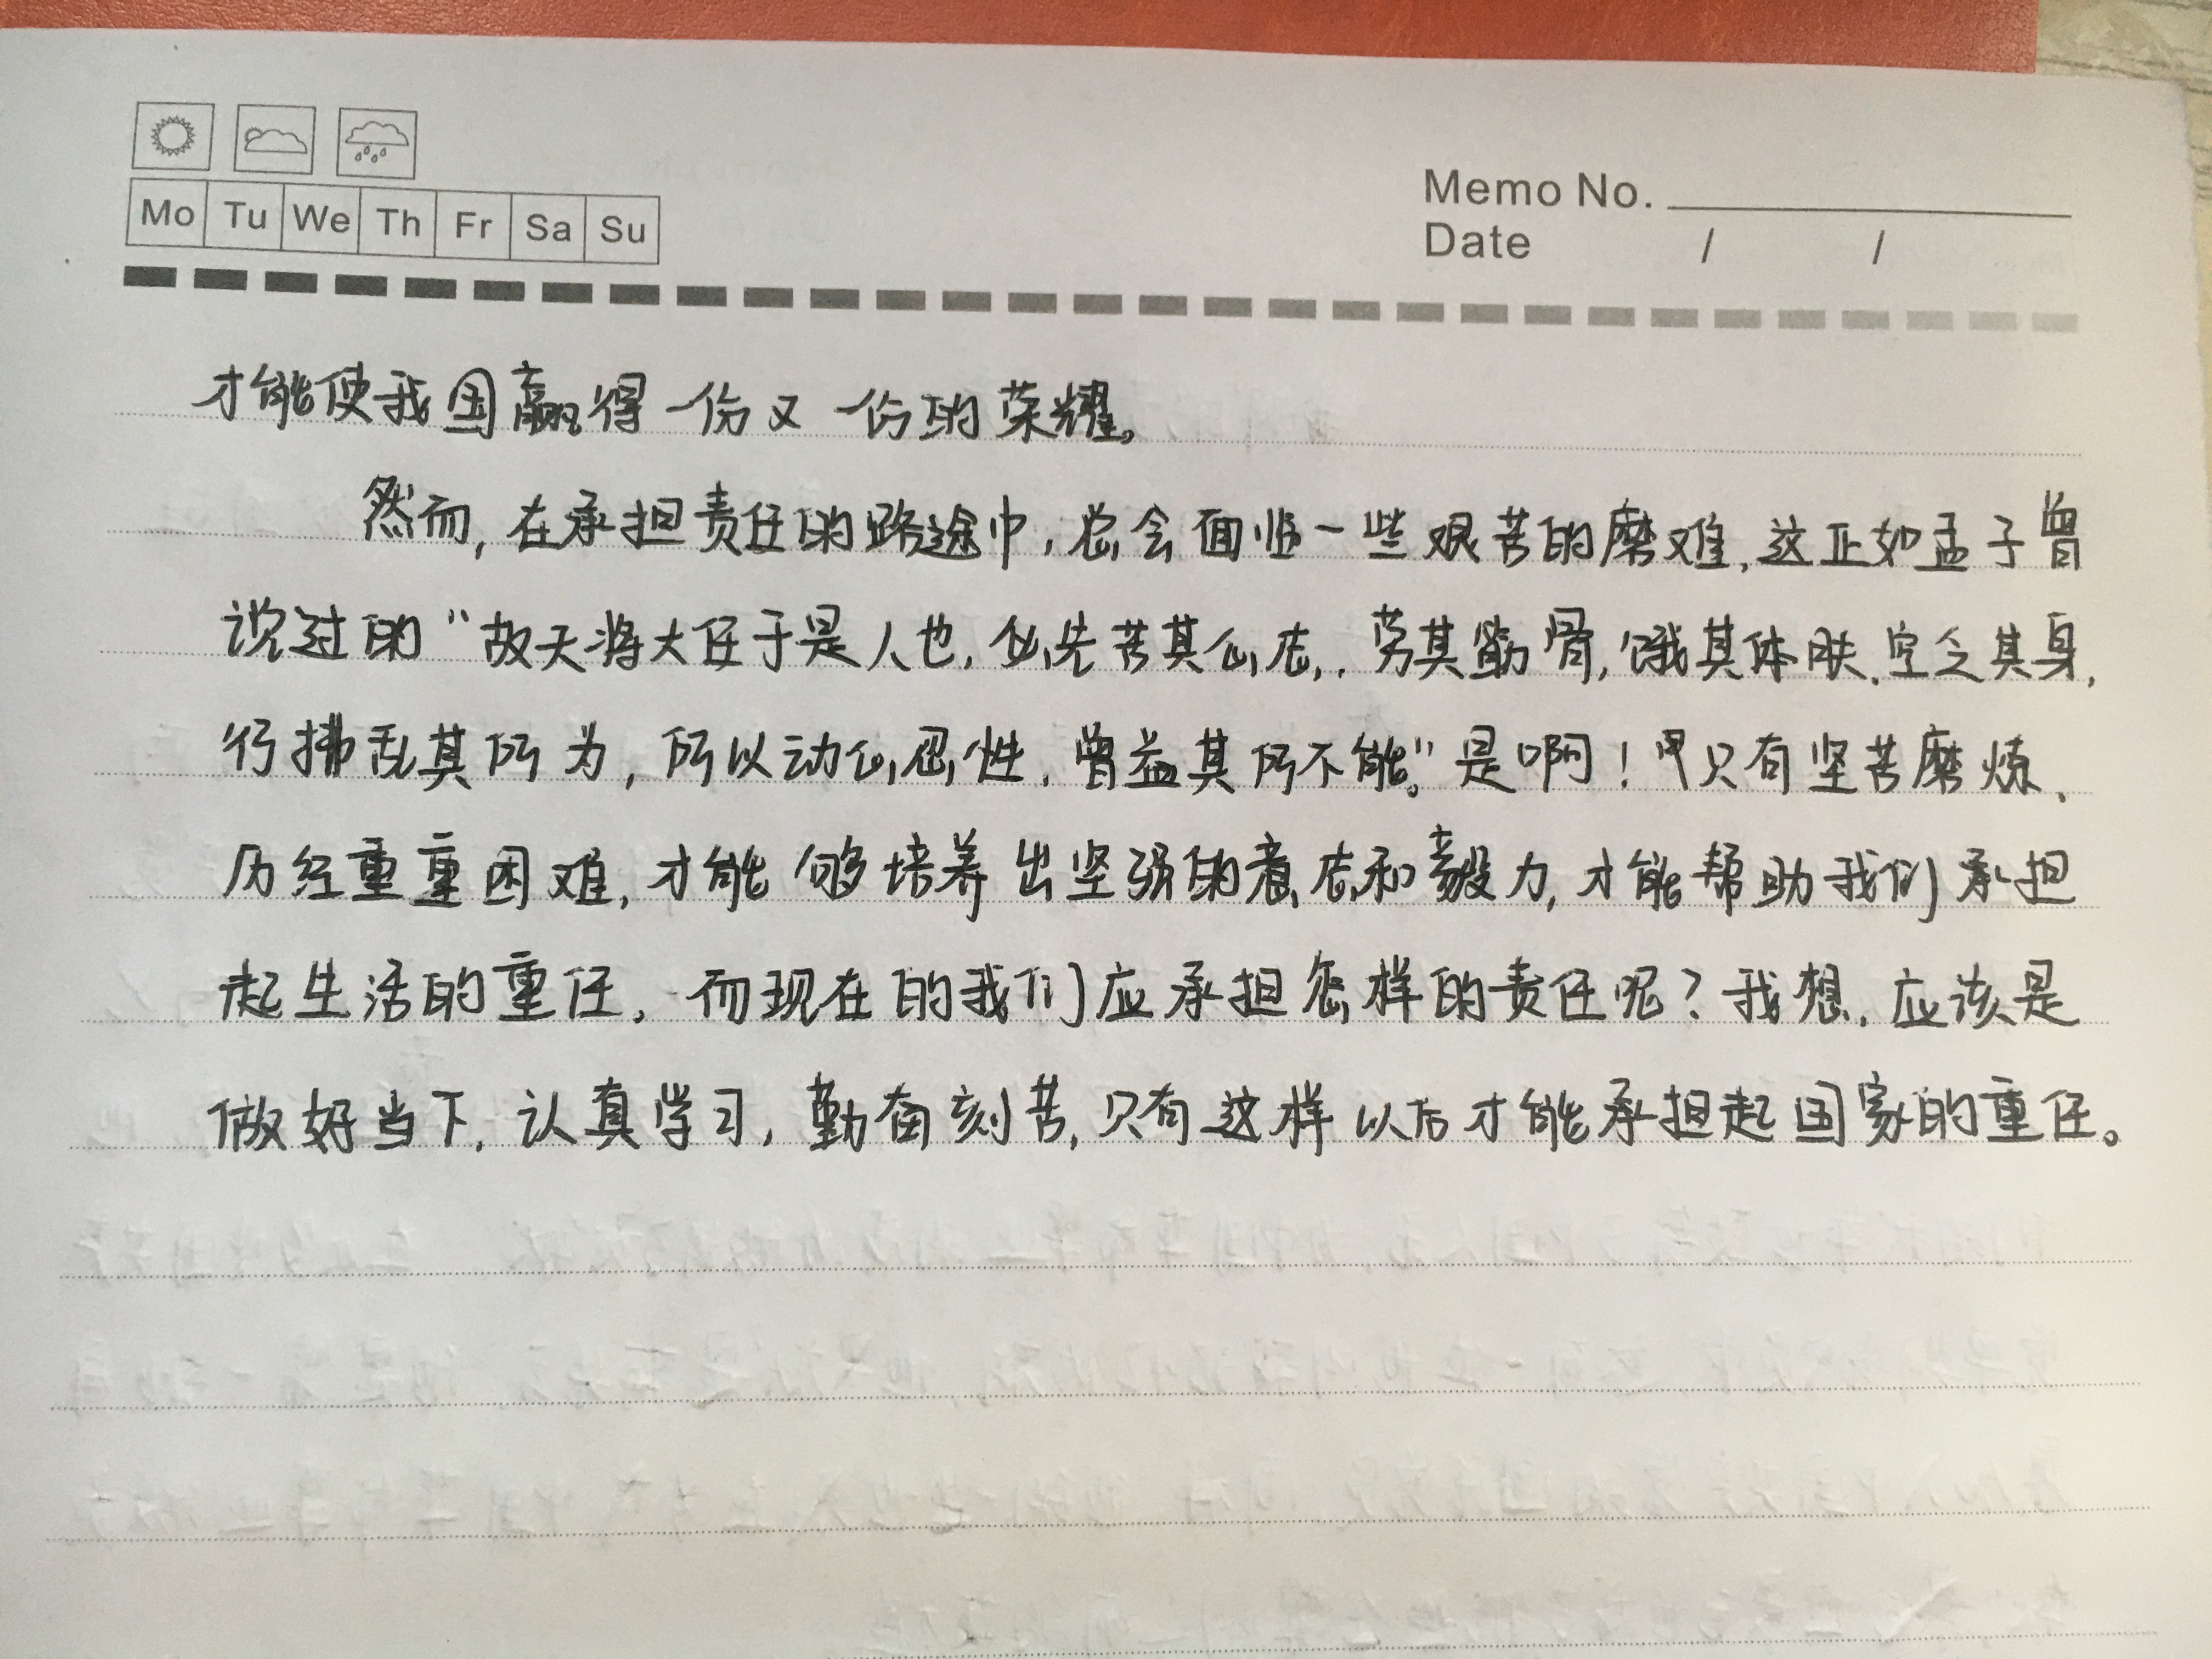 Mo Tu We Th Fr Sa Su
Memo No.
Date / /
才能使我国赢得一份又一份的荣耀。
然而,在承担责任的路途中,总会面临一些艰苦的磨难,这正如孟子曾
说过的“故天将大任于是人也,必先苦其心志,劳其筋骨,饿其体肤,空乏其身,
行拂乱其所为,所以动心忍性,曾益其所不能。”是啊!只有坚苦磨炼、
历经重重困难,才能够培养出坚强的意志和毅力,才能帮助我们承担
起生活的重任,而现在的我们应承担怎样的责任呢?我想,应该是
做好当下,认真学习,勤奋刻苦,只有这样以后才能承担起国家的重任。